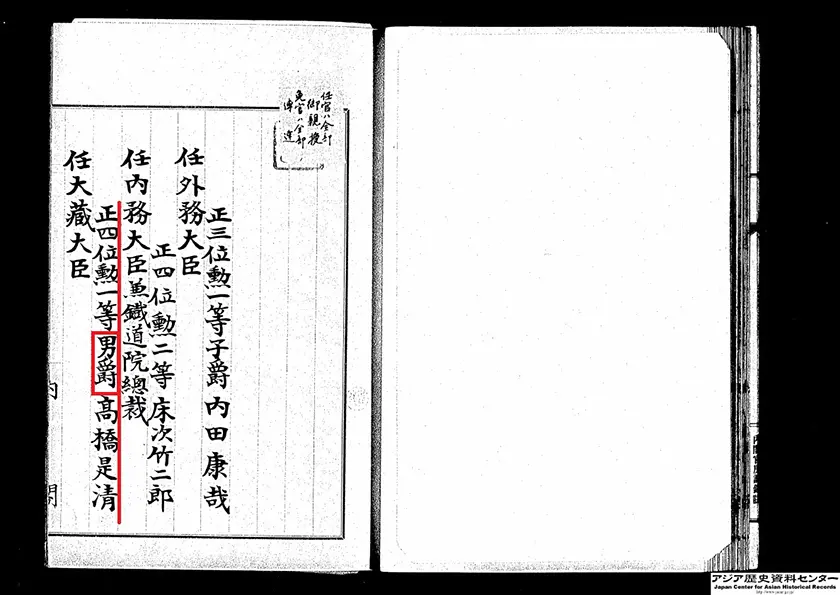 任官ハ全部
御親授
免官ハ全部
正三位勲一等子爵內田康哉
任外務大臣
正四位勲二等床次竹二郎
任內務大臣兼鐵道院總裁
正四位勲一等男爵高橋是清
任大藏大臣
內閣
アジア歴史資料センター
Japan Center for Asian Historical Records
http://www.jacar.go.jp/